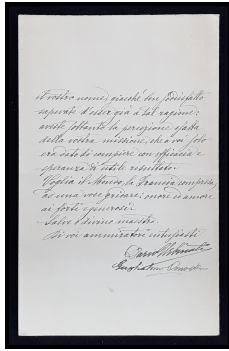 il vostro nome, giacchè ben soddisfatto
sapevate d'esser già a tal ragione:
aveste soltanto la percezione esatta
della vostra missione, che a voi solo
era dato di compiere con efficacia e
speranza di utili resultati.
Voglia il Mondo, la Francia compresa,
una voce gridare: onore ed amore
ai forti e generosi.
Salve o divino maestro.
Di voi ammiratori entusiasti